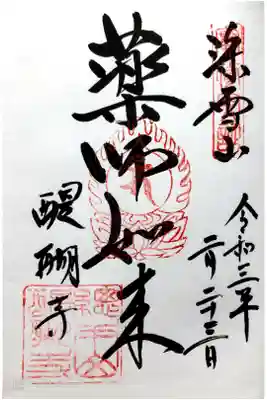 深雪山
令和三年
二月二十三日
薬師如来
醍醐寺